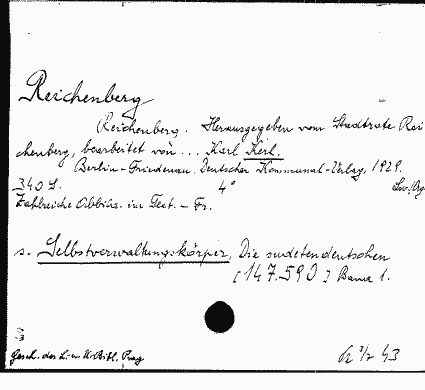 Reichenberg
(Reichenberg. Herausgegeben vom Stadtrate Rei
chenberg, bearbeitet von ... Karl Kerl.
Berlin-Friedenau, Deutscher Kommunal-Verlag, 1929.
340 S. 4°
Zahlreiche Abbild. im Text. - Fr.
s. Selbstverwaltungskörper, Die sudetendeutschen
[147.590] Band 1.
Gesch. der L. u. U. Bibl. Prag
43